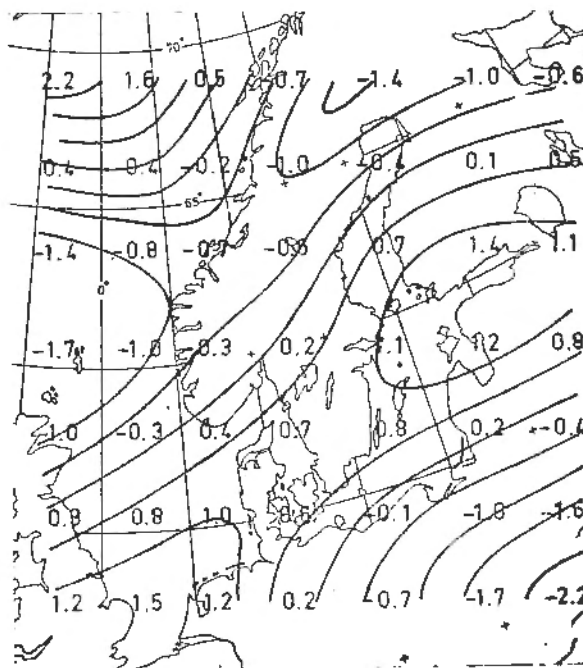 70°
2.2 1.6 0.5 -0.7 -1.4 -1.0 -0.6
0.4 0.4 -0.2 -1.0 -0.4 0.1
65°
-1.4 -0.8 0.7 1.4 1.1
0°
-1.7 -1.0 -0.3 0.2 0.8
1.0 -0.3 0.4 0.7 0.8 0.2 -0.4
0.8 1.0 -0.1 -1.6
1.2 1.5 1.2 0.2 -0.7 -1.7 -2.2